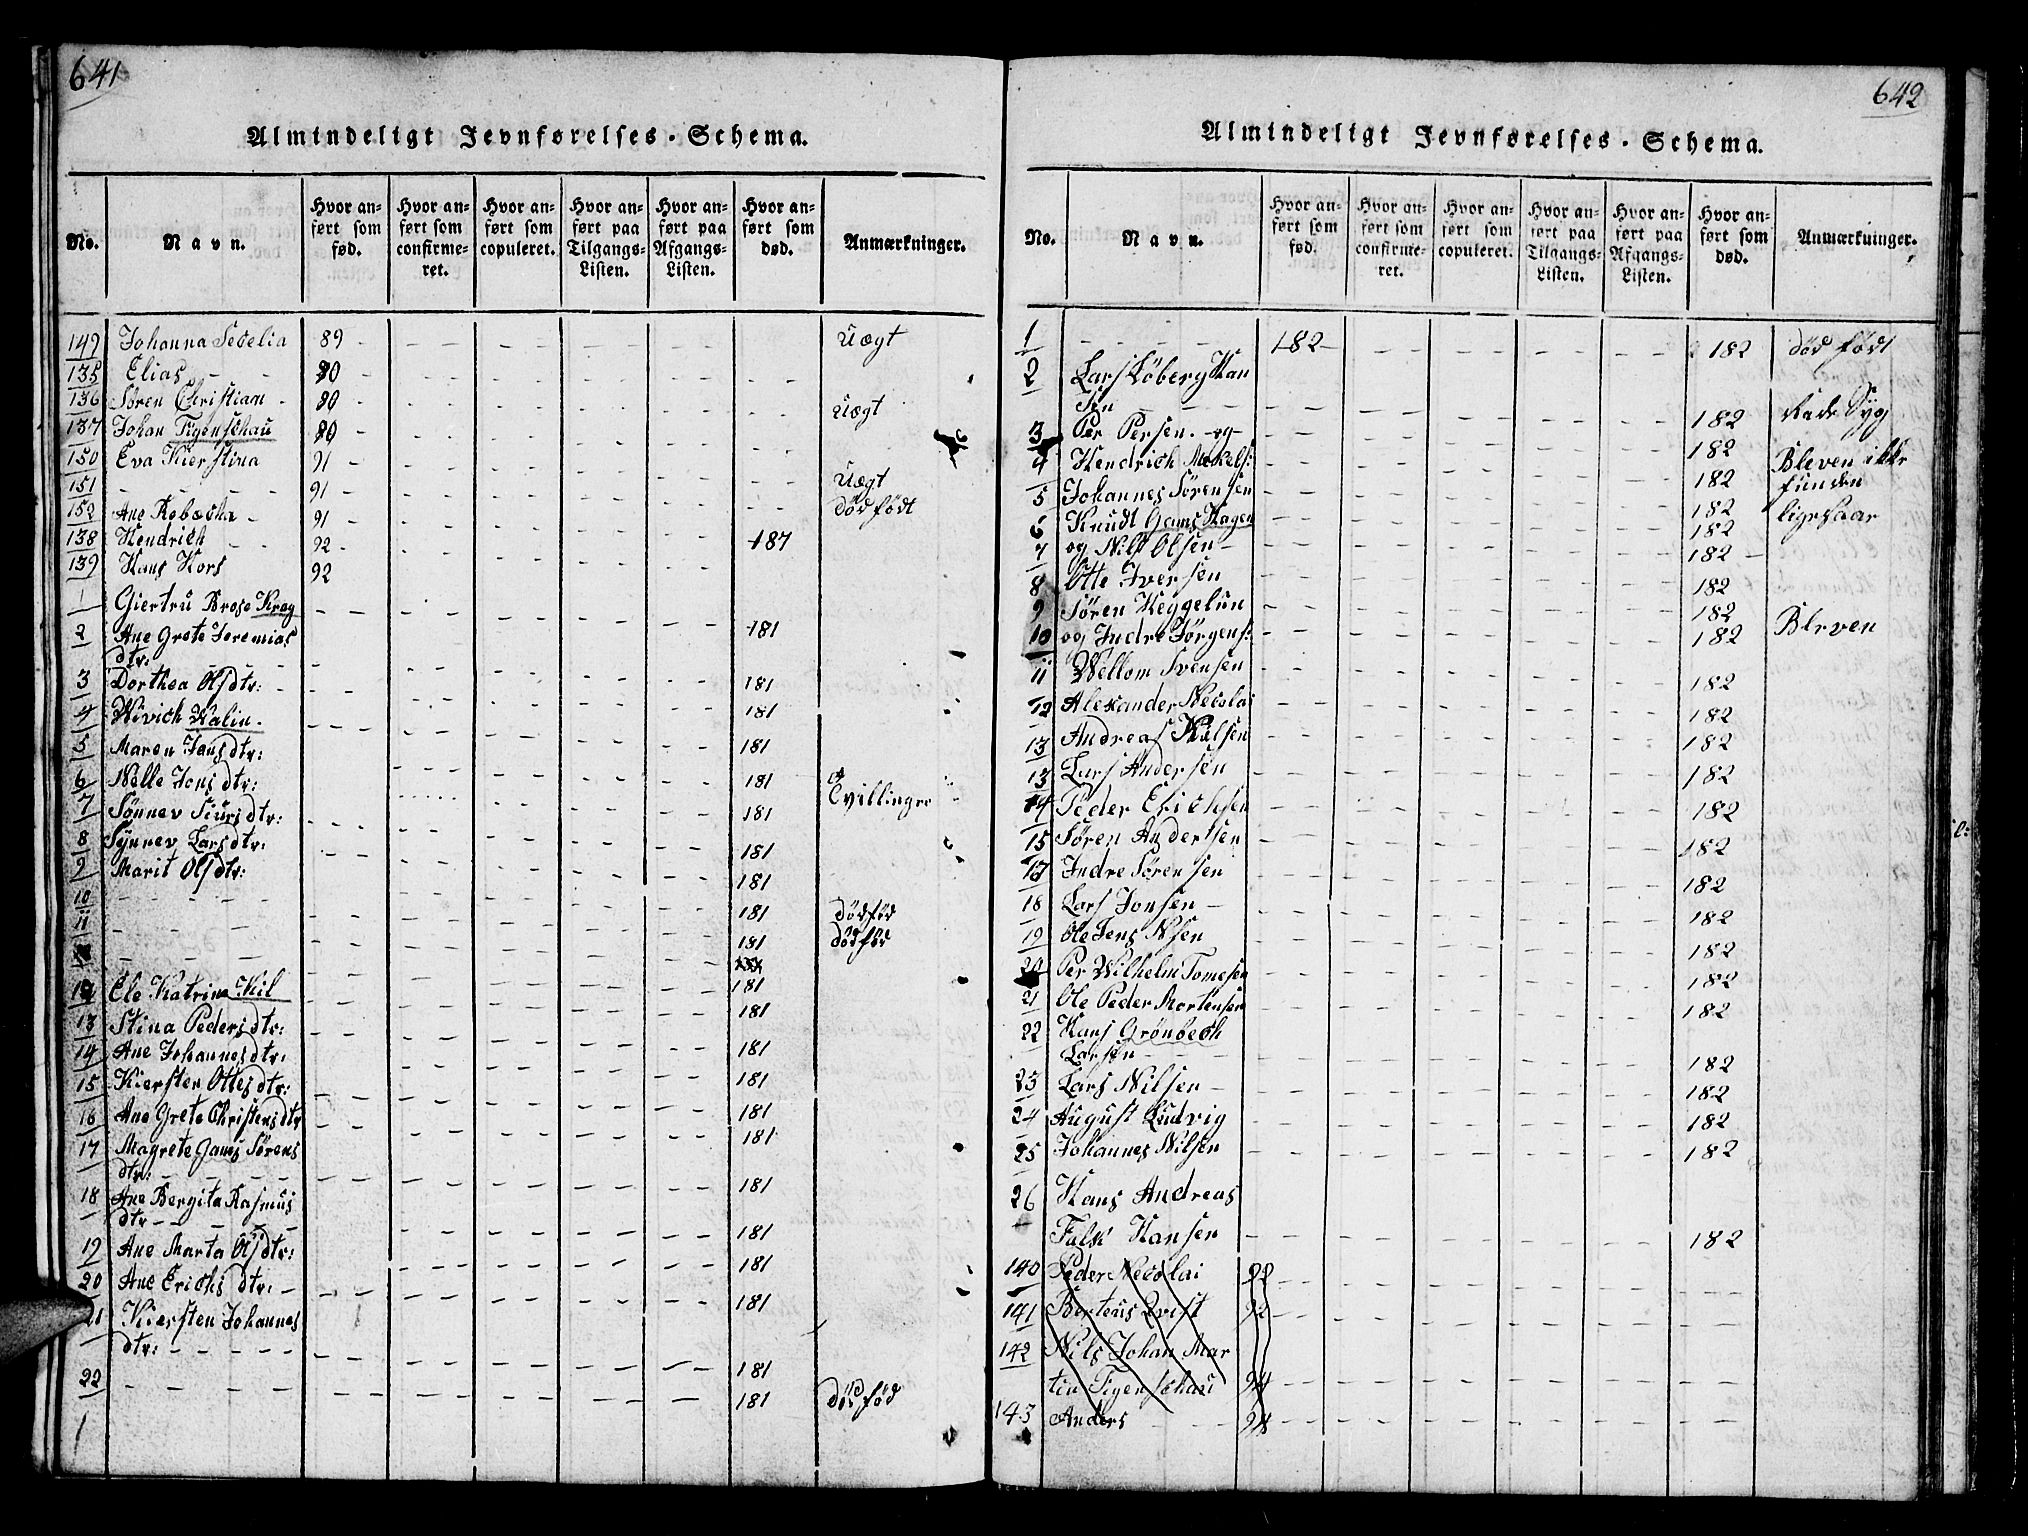 641
Almindeligt Jevnførelses-Schema.
No.
Navn.
Hvor anført som fød.
Hvor anført som confirmeret.
Hvor anført som copuleret.
Hvor anført paa Tilgangs-Listen.
Hvor anført paa Afgangs-Listen.
Hvor anført som død.
Anmærkninger.
149 Johanna Sedelia 89 Uægt
135 Elias 90
136 Søren Christian 90 Uægt
137 Johan Figenschau 90
150 Eva Kierstina 91 Uægt
151 91 Dødfødt
152 Ane Rebecha 91
138 Hendrich 92 187
139 Hans Kors 92
1 Giertru Brose Krog 181
2 Ane Grete Jeremias
dtr:
3 Dorthea Olsdtr: 181
4 Wivich Kalin 181
5 Maren Jansdtr: 181
6 Nille Jonsdtr: 181
7 Sønnev Siursdtr: 181 Tvillinger
8 Synnev Larsdtr: 181
9 Marit Olsdtr: 181
10 181 Dødfød
11 181 Dødfød
181
12 Ele Katrine Kil 181
13 Stina Pedersdtr: 181
14 Ane Johannesdtr: 181
15 Kiersten Ottesdtr: 181
16 Ane Grete Christensdtr 181
17 Magrete Jams Sørens
dtr: 181
18 Ane Bergita Rasmus
dtr 181
19 Ane Marta Olsdtr: 181
20 Ane Erichs dtr: 181
21 Kiersten Johannes
dtr: 181
22 181 Dødfød
642
Almindeligt Jevnførelses-Schema.
No.
Navn.
Hvor anført som fød.
Hvor anført som confirmeret.
Hvor anført som copuleret.
Hvor anført paa Tilgangs-Listen.
Hvor anført paa Afgangs-Listen.
Hvor anført som død.
Anmærkninger.
1 182 182 død født
2 Lars Köberg Han
sen 182 Rade Syg
3 Per Persen og 182
4 Hendrich Mekels: 182 Bleven ikke
5 Johannes Sørensen 182 funden
6 Knudt Jams Hagen 182 ligesaar
7 og Nils Olsen 182
8 Otte Iversen 182
9 Søren Heggelun 182
10 og Indre Jørgens: 182 Bleven
11 Wellom Svensen 182
12 Alexander Necolai 182
13 Andreas Kulsen 182
13 Lars Andersen 182
14 Peder Erichsen 182
15 Søren Andertsen 182
17 Indre Sørensen 182
18 Lars Jonsen 182
19 Ole Jens Nsen 182
20 Per Wilhelm Tomesen 182
21 Ole Peder Mortensen 182
22 Hans Grønbech
Larsen 182
23 Lars Nilsen 182
24 August Ludvig 182
25 Johannes Nilsen 182
26 Hans Andreas
Falk Hansen 182
140 Peder Necolai 92
141 Berteus Qvist 92
142 Nils Johan Mar
tin Figenschau 94
143 Anders 94